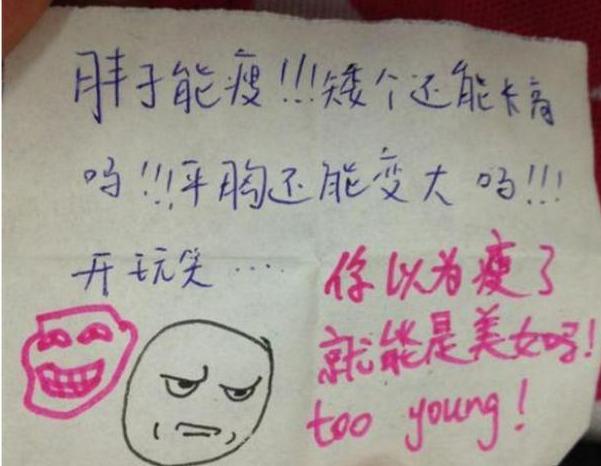 胖子能瘦!!!矮个还能长高
吗!!!平胸还能变大吗!!!
开玩笑…
你以为瘦了
就能是美女吗!
too young!